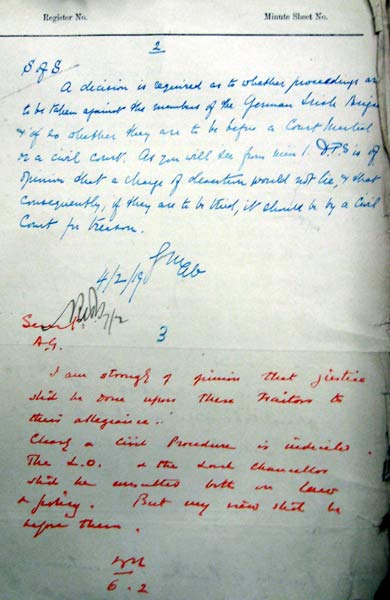 Register No. Minute Sheet No.
2
S of S
A decision is required as to whether proceedings are
to be taken against the members of the German Irish Briga
& if so whether they are to be before a Court Martial
or a civil court. As you will see from min 1. D.P.S is of
opinion that a charge of desertion would not lie, & that
consequently, if they are to be tried, it should be by a Civil
Court for treason.
4/2/19
7/2
3
A.G.
I am strongly of opinion that justice
shd be done upon these traitors to
their allegiance.
Clearly a Civil Procedure is indicated.
The L.O. & the Lord Chancellor
shd be consulted both on law
& policy. But my view shd be
before them.
6.2